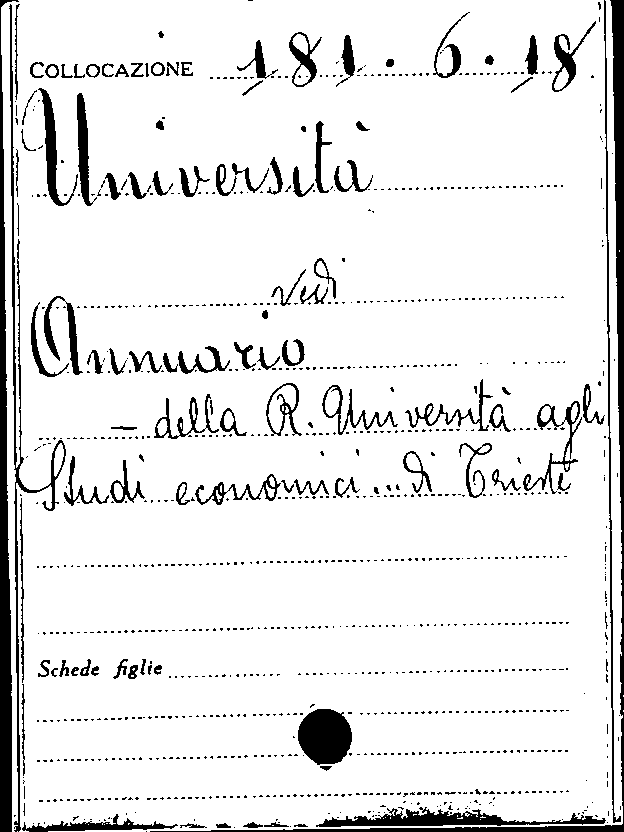 COLLOCAZIONE 181.6.18
Università
vedi
Annuario
- della R. Università agli
Studi economici... di Trieste
Schede figlie